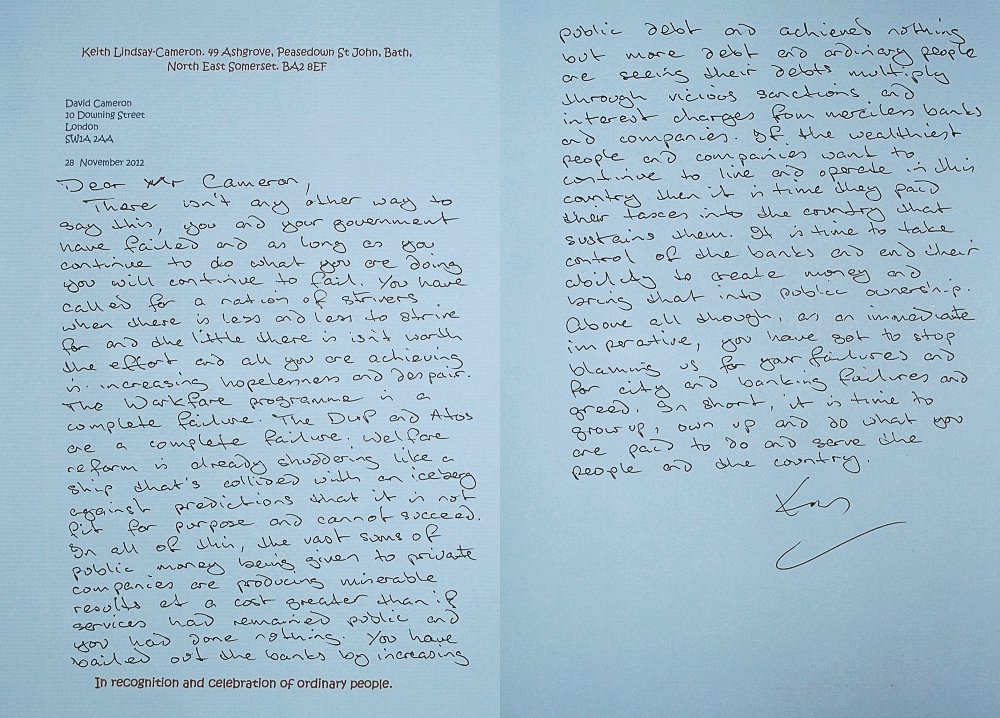 Keith Lindsay-Cameron. 49 Ashgrove, Peasedown St John, Bath,
North East Somerset. BA2 8EF
David Cameron
10 Downing Street
London
SW1A 2AA
28 November 2012
Dear Mr Cameron,
There isn't any other way to
say this, you and your government
have failed and as long as you
continue to do what you are doing
you will continue to fail. You have
called for a nation of strivers
when there is less and less to strive
for and the little there is isn't worth
the effort and all you are achieving
is increasing hopelessness and despair.
The Workfare programme is a
complete failure. The DWP and Atos
are a complete failure. Welfare
reform is already shuddering like a
ship that's collided with an iceberg
against predictions that it is not
fit for purpose and cannot succeed.
In all of this, the vast sums of
public money being given to private
companies are producing miserable
results at a cost greater than if
services had remained public and
you had done nothing. You have
bailed out the banks by increasing
In recognition and celebration of ordinary people.
public debt and achieved nothing
but more debt and ordinary people
are seeing their debts multiply
through vicious sanctions and
interest charges from merciless banks
and companies. If the wealthiest
people and companies want to
continue to live and operate in this
country then it is time they paid
their taxes into the country that
sustains them. It is time to take
control of the banks and end their
ability to create money and
bring that into public ownership.
Above all though, as an immediate
imperative, you have got to stop
blaming us for your failures and
for city and banking failures and
greed. In short, it is time to
grow up, own up and do what you
are paid to do and serve the
people and the country.